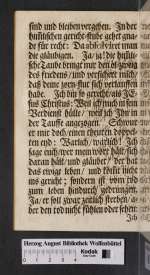 sind und bleiben vergeben. In der
himmlischen gerichts-stube gehet gna-
de für recht: Da absolviret man
die gläubigen. Ja ja! die himmli-
sche Taube bringt mir den ölzweig
des friedens / und versichert mich /
daß deine zorn-flut sich verlauffen
hab. Ich bin so gerecht als JE-
sus Christus: Weil ich mich in sein
Verdienst hülle / weil ich Ihn in
der Tauffe angezogen. Schweret
er mir doch einen theuren doppel-
ten eyd: Warlich / warlich! Ich
sage euch / wer mein wort hält / sich
daran hält / und gläubet / der hat
das ewige leben / und kömt nicht
ins gericht; sondern ist vom tode
zum leben hindurch gedrungen.
Ja / er soll zwar zeitlich sterben / a-
ber den tod nicht fühlen oder sehen
Ich
Herzog August Bibliothek Wolfenbüttel